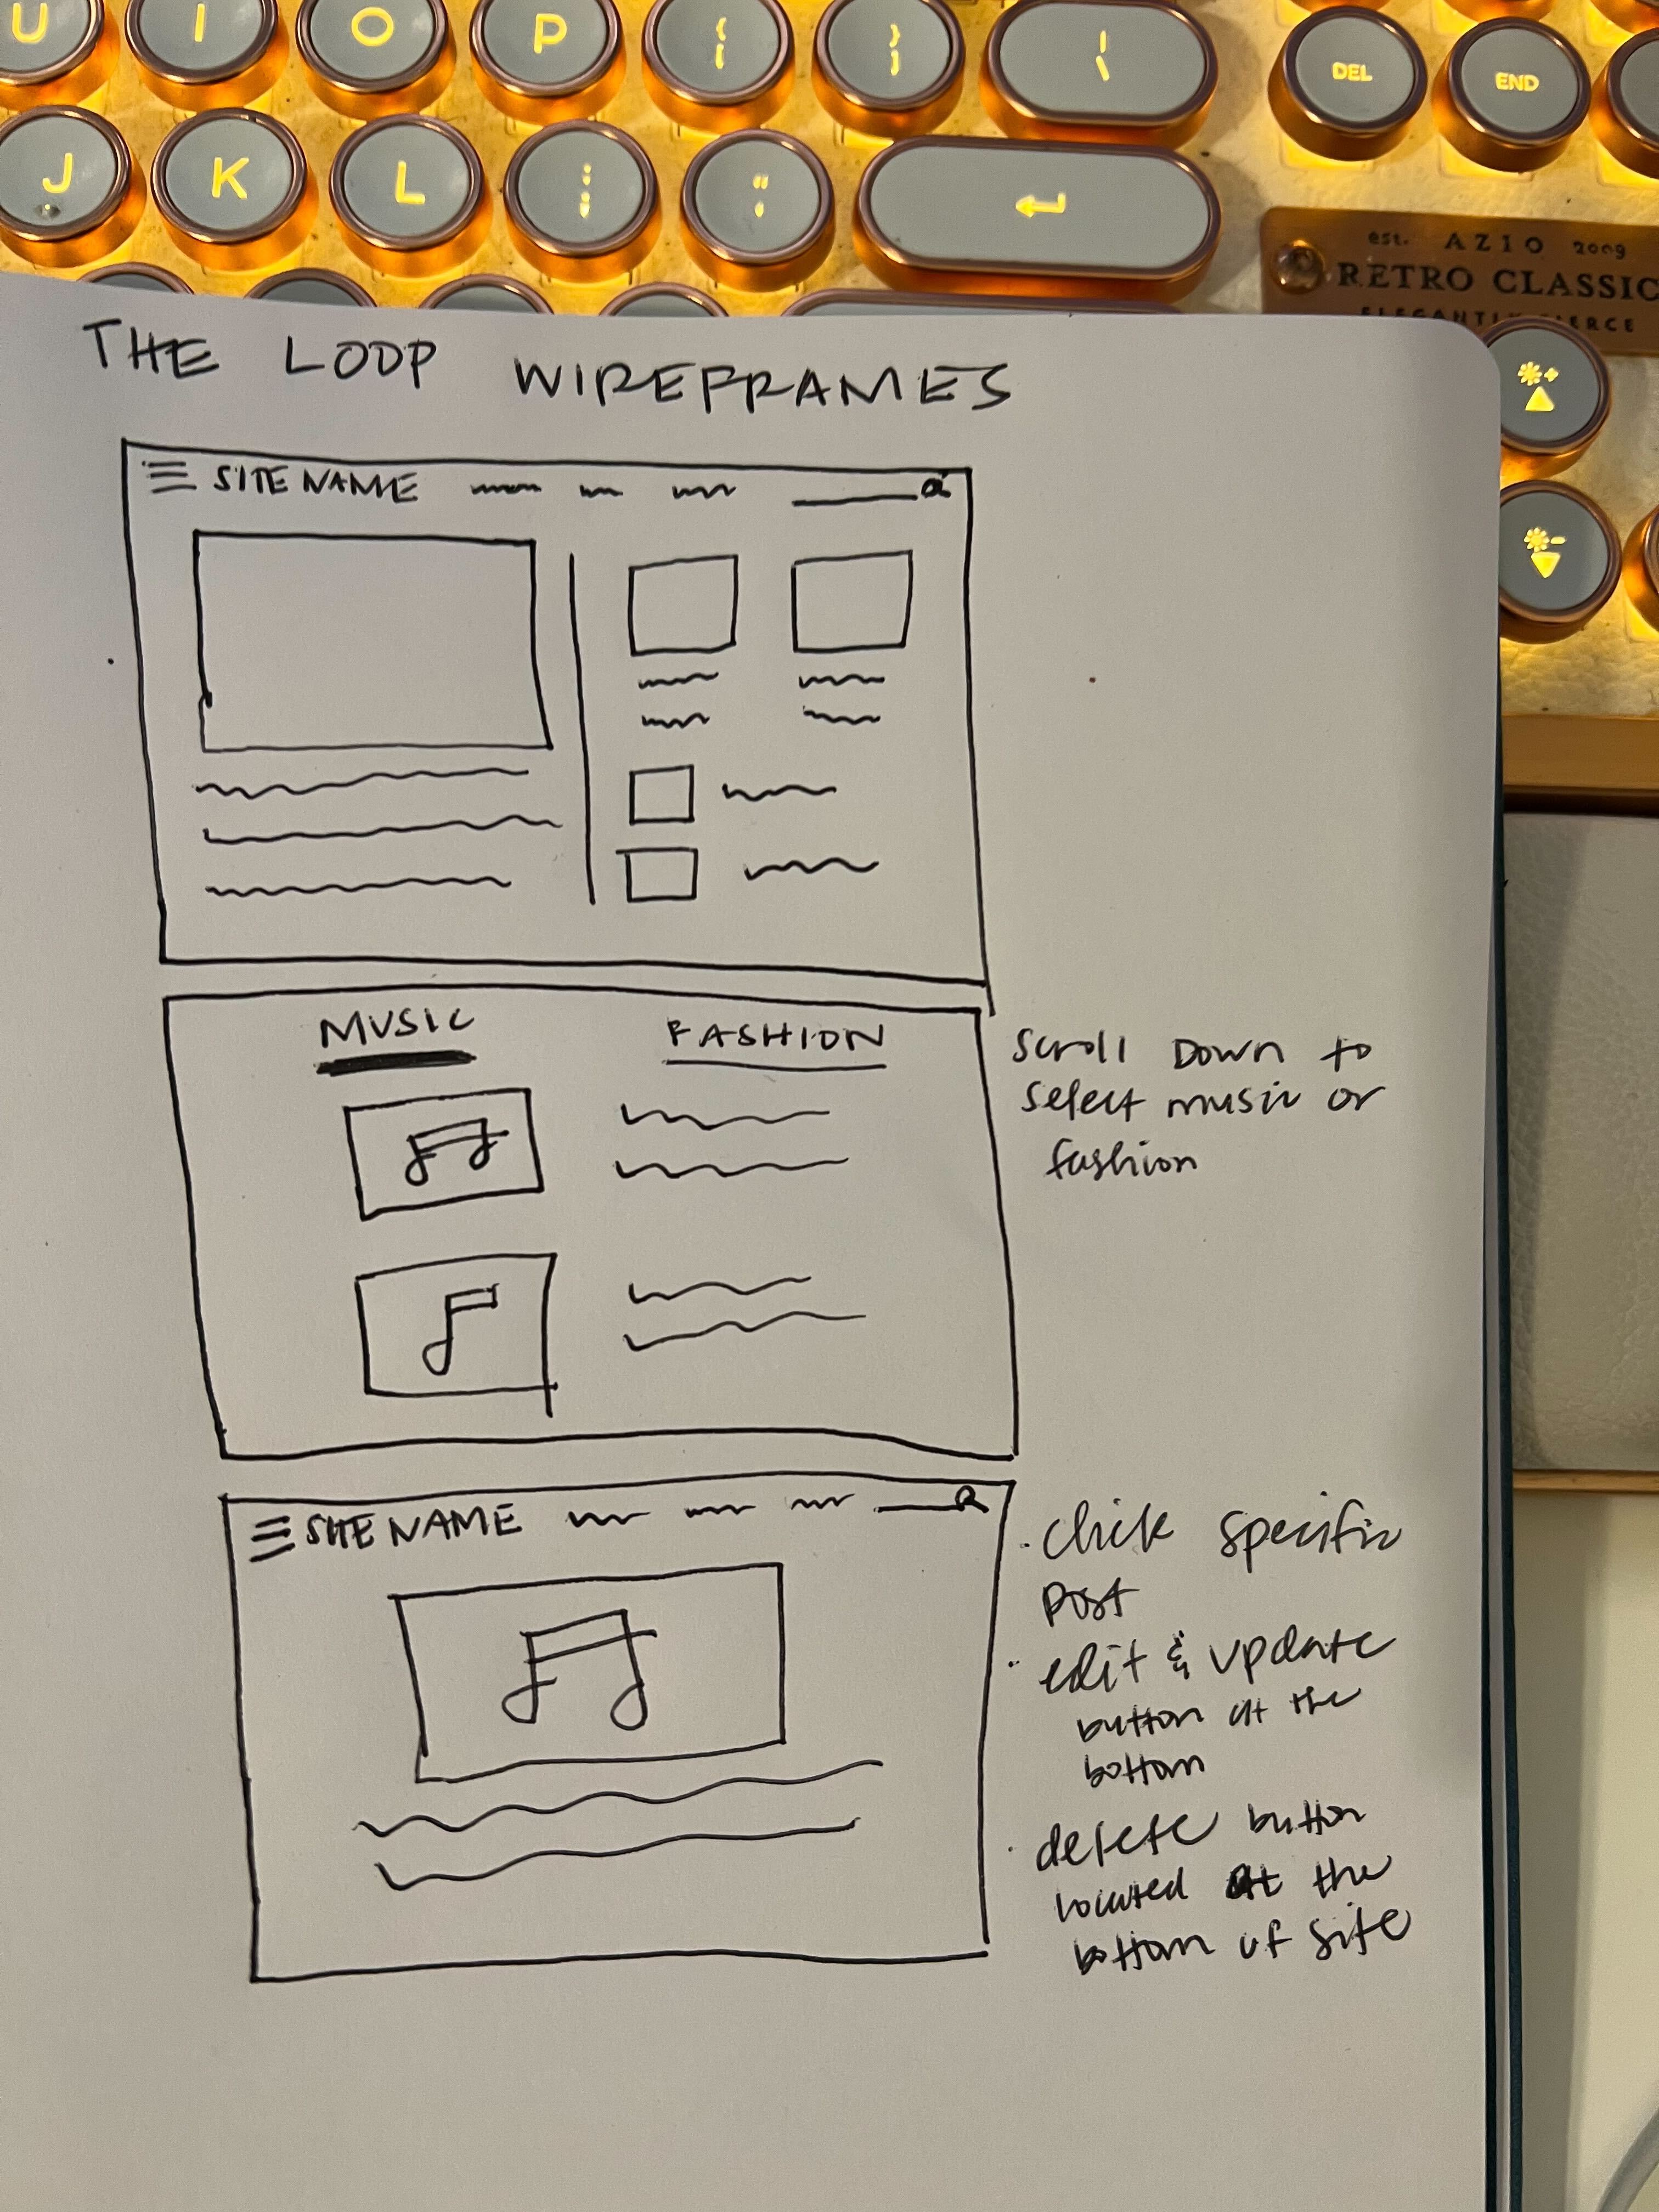 U I O P { [ } ] | \ DEL END
J K L : ; " '
est. AZIO 2009
RETRO CLASSIC
ELEGANTLY FIERCE
THE LOOP WIREFRAMES
SITE NAME
MUSIC FASHION
scroll Down to
select music or
fashion
SITE NAME
· click specific
post
· edit & update
button at the
bottom
· delete button
located at the
bottom of site